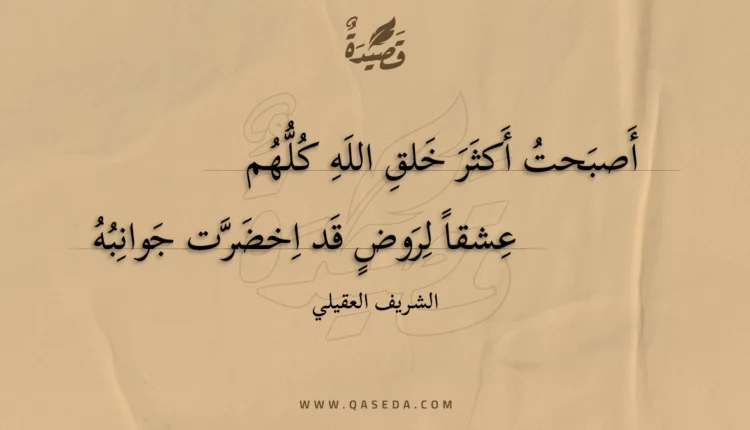 قَصِيدَةٌ
أَصبَحتُ أَكثَرَ خَلقِ اللَهِ كُلُّهُم
عِشقاً لِرَوضٍ قَد اِخضَرَّت جَوانِبُهُ
الشريف العقيلي
WWW.QASEDA.COM